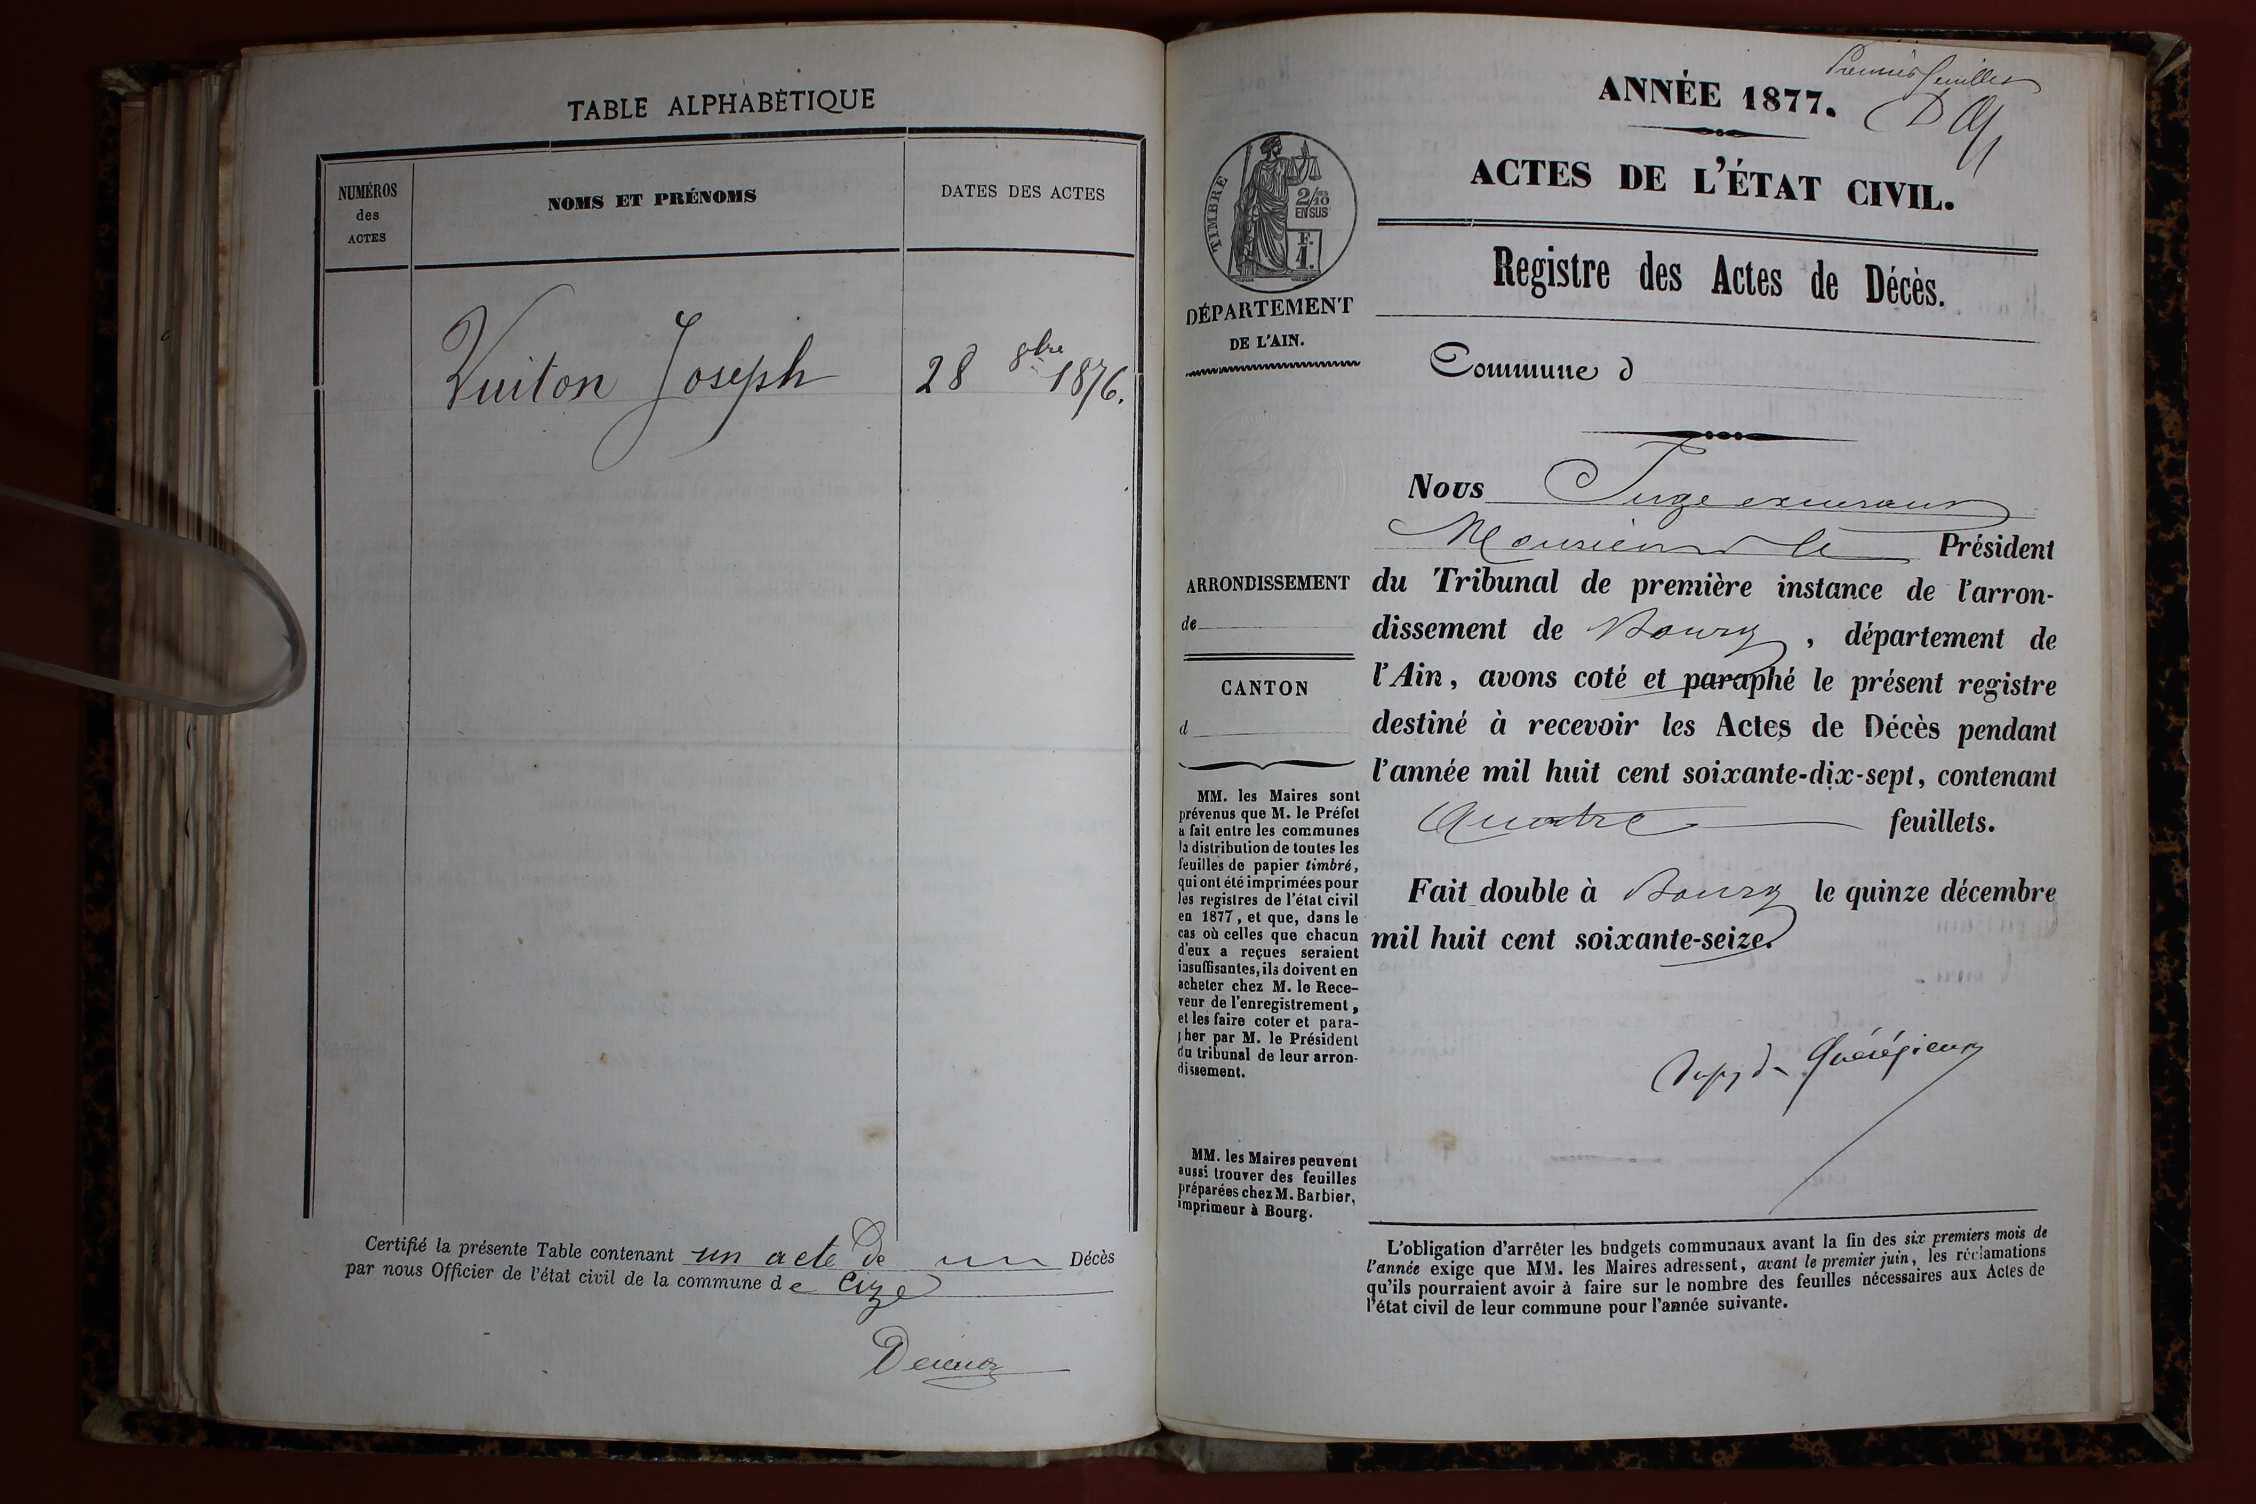 TABLE ALPHABÉTIQUE
NUMÉROS
des
ACTES
NOMS ET PRÉNOMS
DATES DES ACTES
Vuiton Joseph
28 8bre 1876.
Certifié la présente Table contenant un acte de un Décès
par nous Officier de l'état civil de la commune de Cize
Premier feuillet
ANNÉE 1877.
ACTES DE L'ÉTAT CIVIL.
Registre des Actes de Décès.
TIMBRE
2/10
EN SUS
F.
1.
DÉPARTEMENT
DE L'AIN.
Commune d
Nous Juge
Monsieur le Président
du Tribunal de première instance de l'arron-
dissement de Bourg, département de
l'Ain, avons coté et paraphé le présent registre
destiné à recevoir les Actes de Décès pendant
l'année mil huit cent soixante-dix-sept, contenant
Quatre feuillets.
Fait double à Bourg le quinze décembre
mil huit cent soixante-seize.
ARRONDISSEMENT
de
CANTON
d
MM. les Maires sont
prévenus que M. le Préfet
a fait entre les communes
la distribution de toutes les
feuilles de papier timbré,
qui ont été imprimées pour
les registres de l'état civil
en 1877, et que, dans le
cas où celles que chacun
d'eux a reçues seraient
insuffisantes, ils doivent en
acheter chez M. le Rece-
veur de l'enregistrement,
et les faire coter et para-
pher par M. le Président
du tribunal de leur arron-
dissement.
MM. les Maires peuvent
aussi trouver des feuilles
préparées chez M. Barbier,
imprimeur à Bourg.
L'obligation d'arrêter les budgets communaux avant la fin des six premiers mois de
l'année exige que MM. les Maires adressent, avant le premier juin, les réclamations
qu'ils pourraient avoir à faire sur le nombre des feuilles nécessaires aux Actes de
l'état civil de leur commune pour l'année suivante.